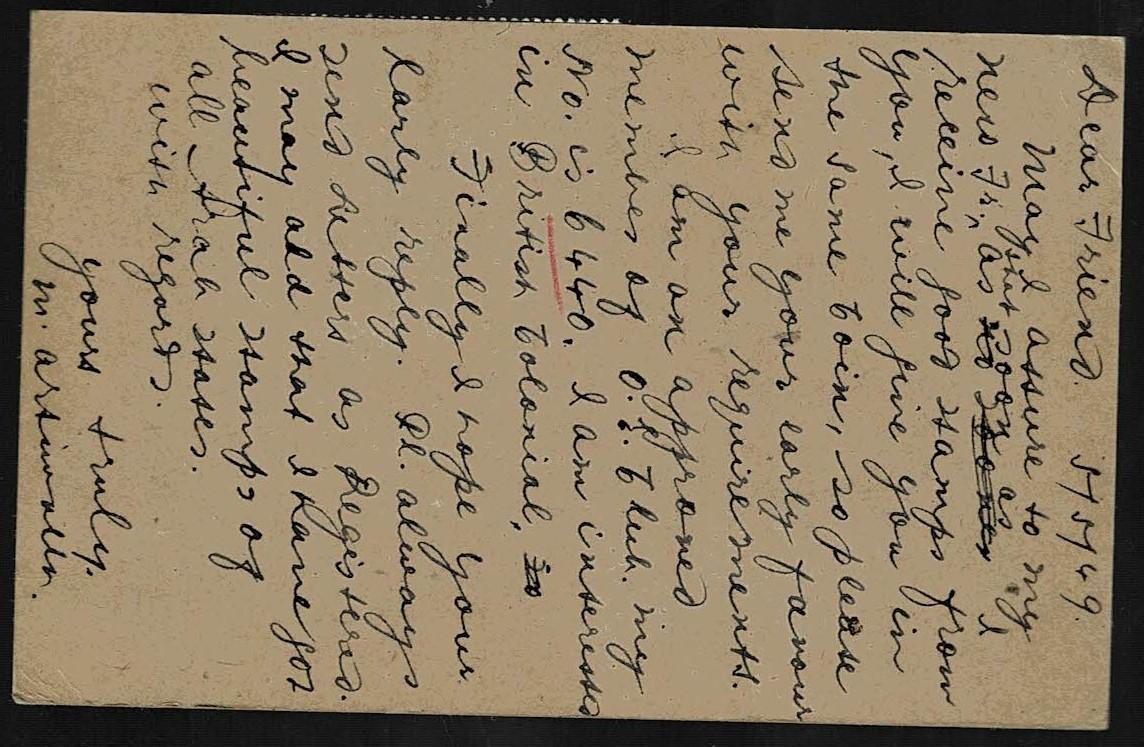 Dear Friend. 5/5/49.
May I assure to my
new Fr, that as soon as I
receive good stamps from
you, I will give you in
the same coin, so please
send me your early favour
with your requirements.
I am an approved
member of O.E. Club. my
No. is 6440. I am interested
in British Colonial,
Finally I hope your
early reply. Pl. always
send letters as Registered.
I may add that I have got
beautiful stamps of
all Arab states.
with regards.
yours truly.